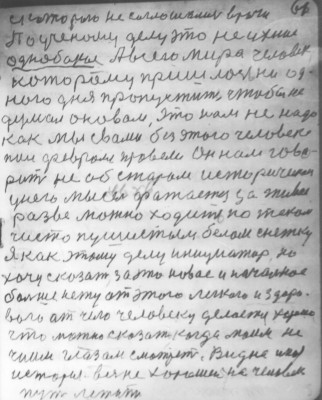 с которого не соглошались врачи
Поученому делу это не ихние
однобокие А всего мира человек
которому пришлось ни од-
ного дня пропустить чтобы не
думал оновом, это нам не надо
как мы свами без этого человека
при древнем провели Он нам гово-
рит не об старом историческом
у него мысль сражается за живое
разве можно ходить по таком
чисто пушистым белом снежку
Я как этому делу инициатор, но
хочу сказат за это новое и
больше нету от этого легкого и здоро-
вого от чего человеку делается хорошо
что можно сказат, когда моим не
чиим глазам смотрет. Видна
история вся не хорошая на человек
пут летит